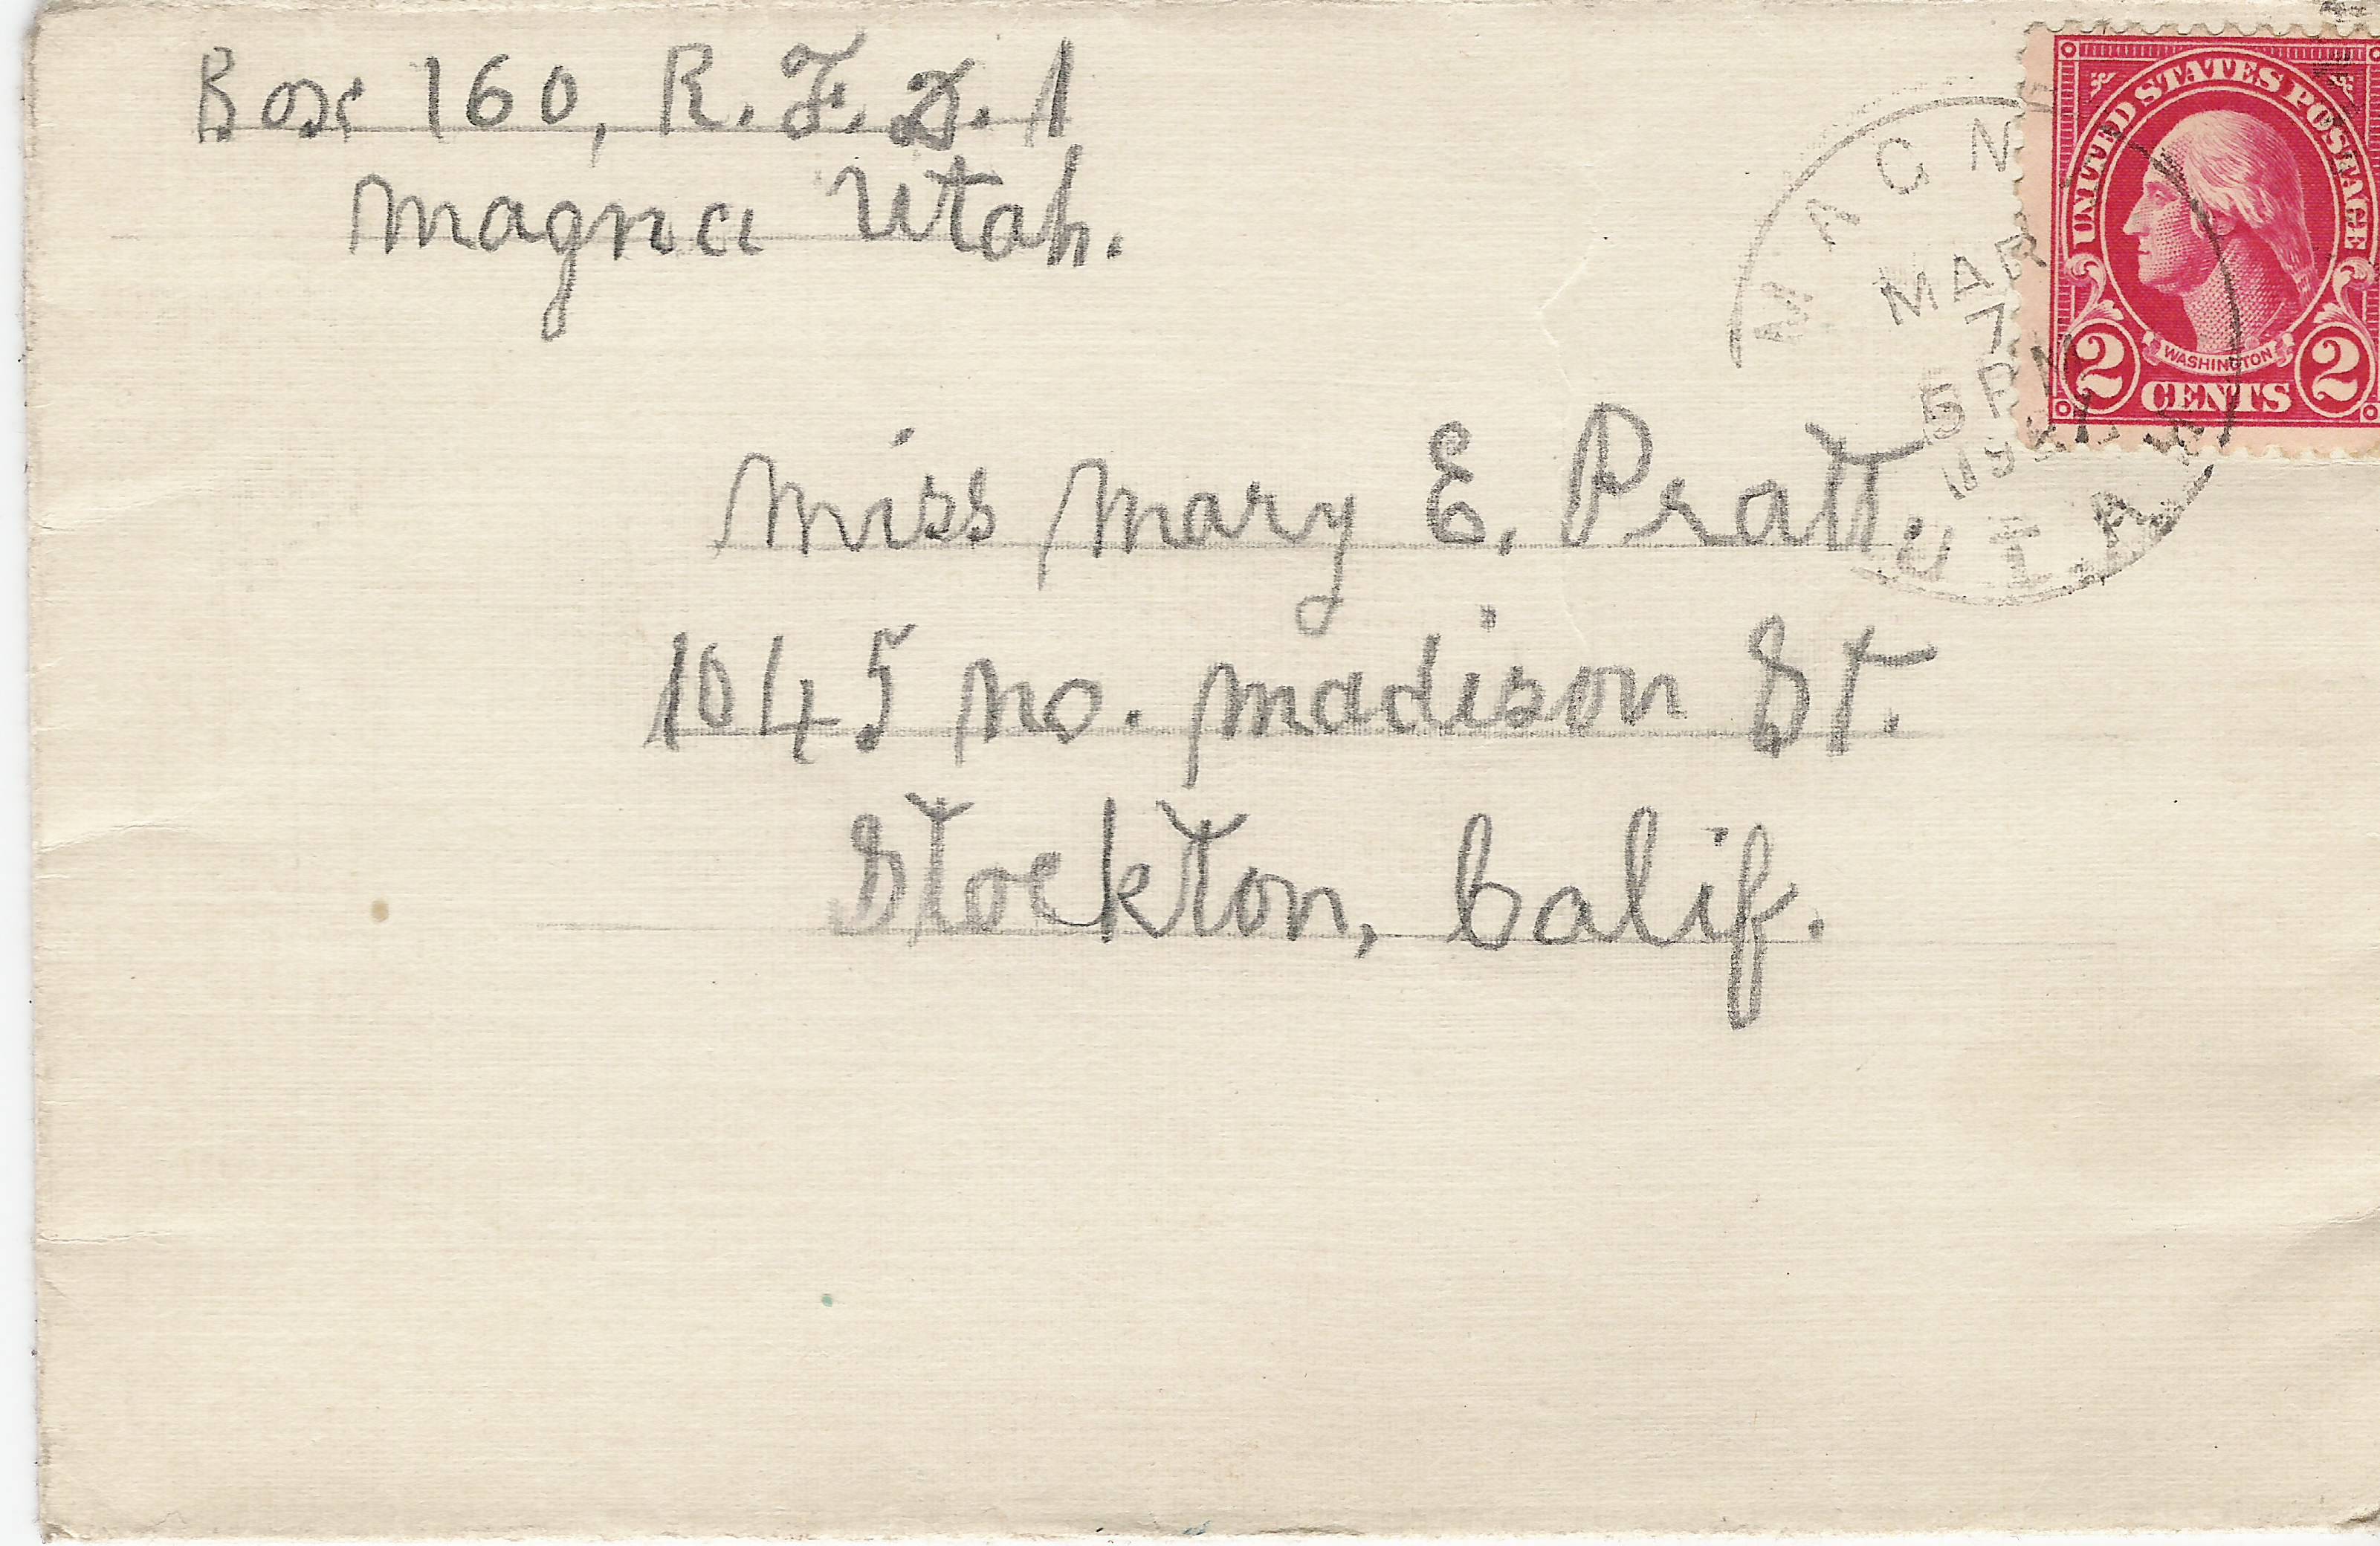 Box 160, R. F. D. 1
Magna Utah.
MAGNA
MAR
7
5 PM
UTAH
UNITED STATES POSTAGE
WASHINGTON
2 CENTS 2
Miss Mary E. Pratt.
1045 No. Madison St.
Stockton, Calif.